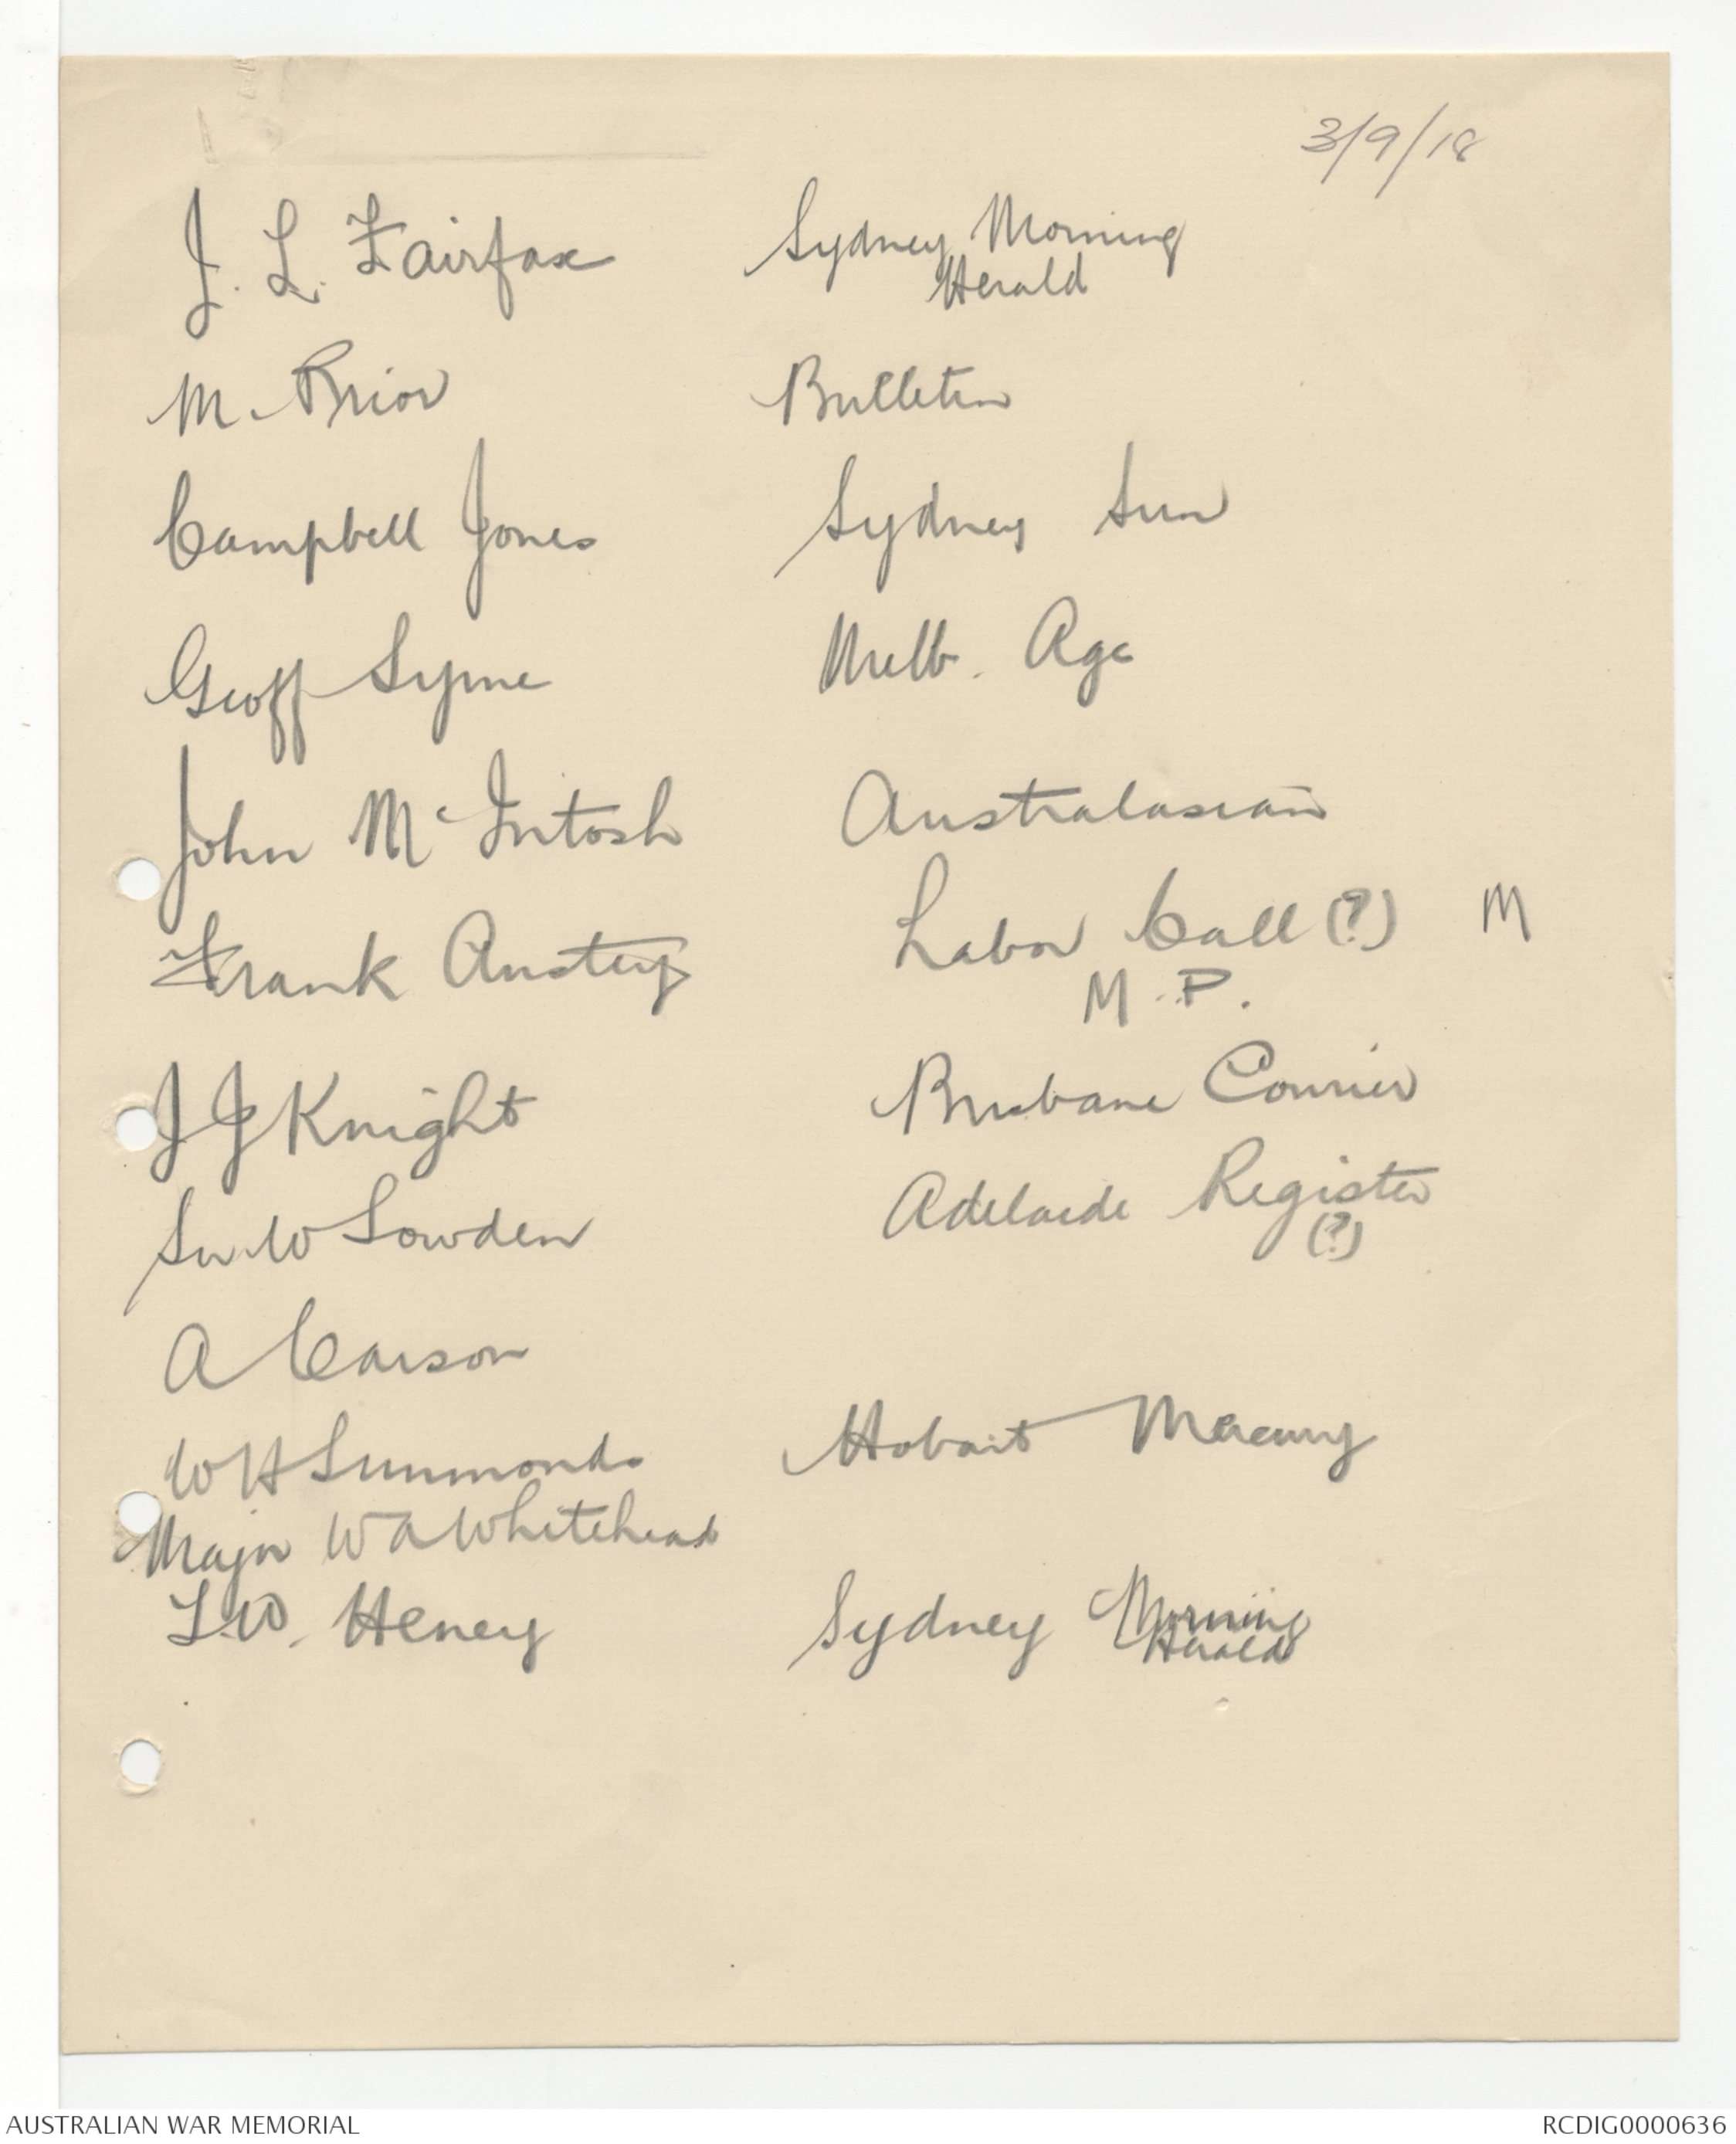 3/9/18
J. L. Fairfax Sydney Morning
Herald
M. Prior Bulletin
Campbell Jones Sydney Sun
Geoff Syme Melb. Age
John McIntosh Australasian
Frank Anstey Labor Call (?) M
M.P.
J J Knight Brisbane Courier
Sir W Sowden Adelaide Register
(?)
A Carson
W H Simmonds Hobart Mercury
Major W A Whitehead
T.W. Heney Sydney Morning
Herald
AUSTRALIAN WAR MEMORIAL RCDIG0000636